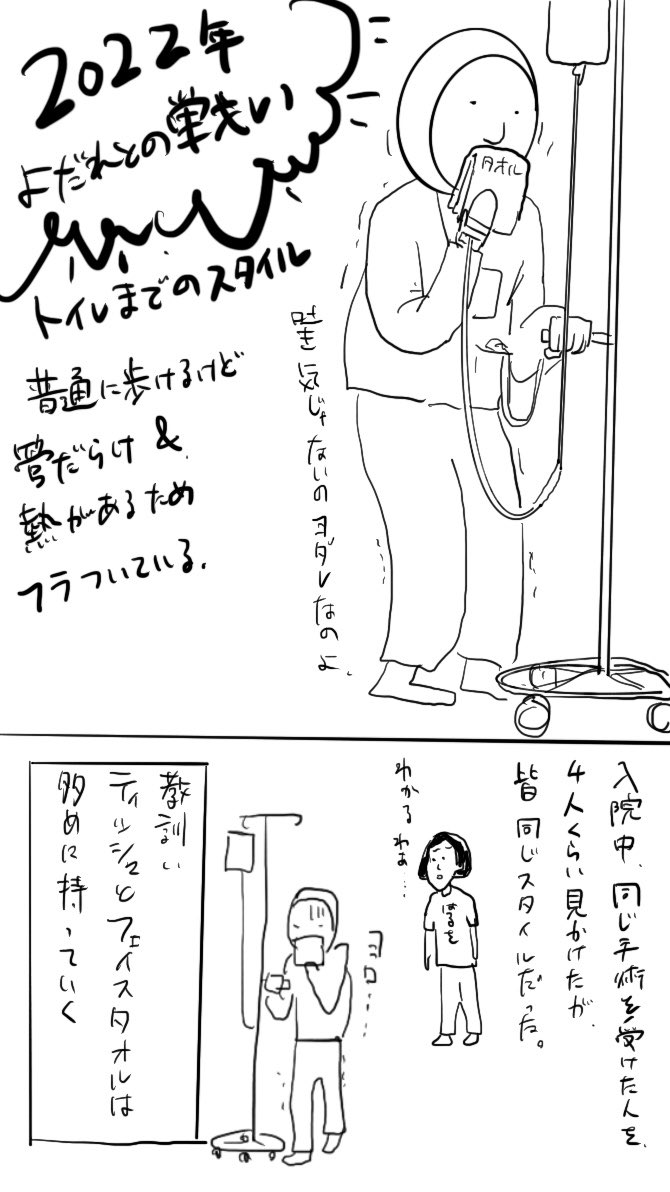 2022年
よだれとの戦い
トイレまでのスタイル
普通に歩けるけど
管だらけ&
熱があるため
フラついている.
タオル
吐き気じゃないのヨダレなのよ.
入院中、同じ手術を受けた人を、
4人くらい見かけたが、
皆同じスタイルだった。
わかるわぁ…
はるを
ヨロ…
教訓い
ティッシュとフェイスタオルは
多めに持っていく